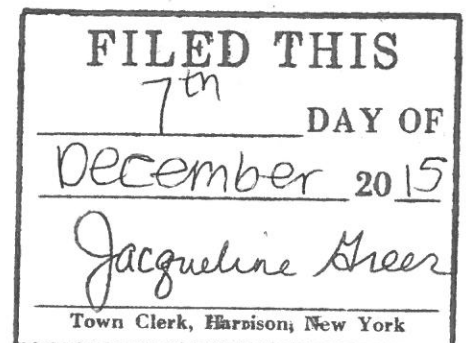 FILED THIS
7th DAY OF
December 20 15
Jacqueline Greer
Town Clerk, Harrison, New York